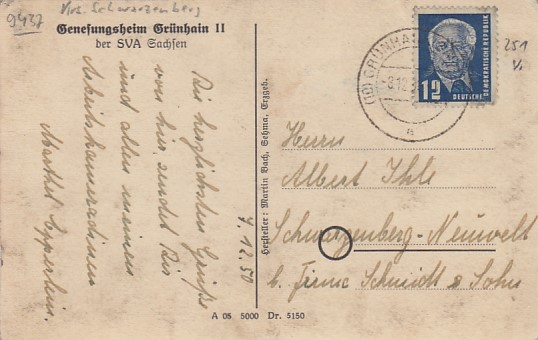 9437
Krs. Schwarzenberg
Genesungsheim Grünhain II
der SVA Sachsen
Die herzlichsten Grüße
von hier sendet Dir
und allen meinen
Arbeitskameradinnen
Mathel Epperlein.
4 12.50
Hersteller: Martin Bach, Sehma, Erzgeb.
A 05 5000 Dr. 5150
(10) GRÜNHA
12 DEUTSCHE
DEMOKRATISCHE REPUBLIK
251
Herrn
Albert Ihle
Schwarzenberg-Neuwelt
b. Firma Schmidt & Sohn